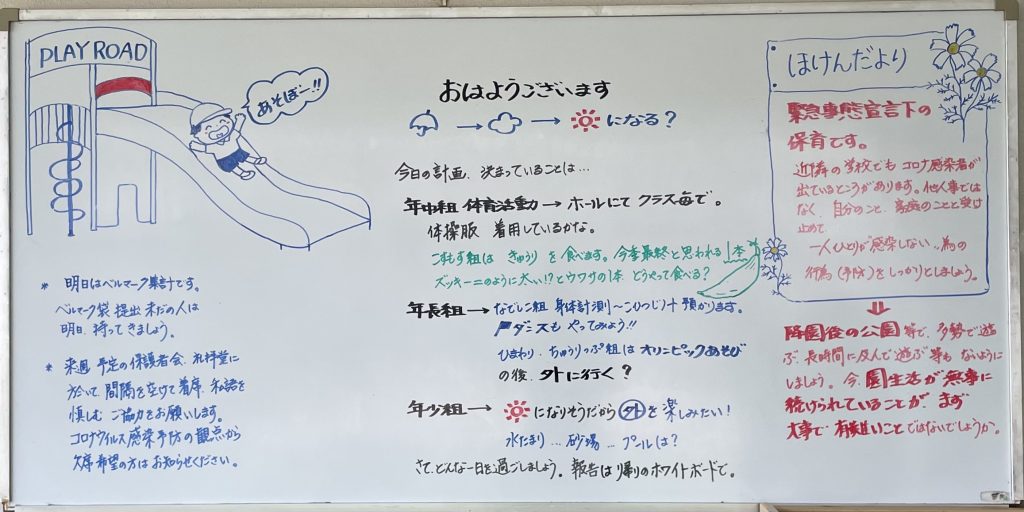 PLAY ROAD
あそぼー!!
* 明日はベルマーク集計です。
ベルマーク袋 提出 未だの人は
明日、持ってきましょう。
* 来週 予定の保護者会、礼拝堂に
於いて、間隔を空けて着席、私語を
慎しむ ご協力をお願いします。
コロナウイルス感染予防の観点から
欠席希望の方は お知らせください。
おはようございます
→ → になる?
今日の計画、決まっていることは…
年中組 体育活動 → ホールにて クラス毎で。
体操服 着用しているかな。
こすもす組は きゅうり を食べます。今季最終と思われる1本
ズッキーニのように太い!?とウワサの1本 どうやって食べる?
年長組 → なでしこ組 身体計測〜ひつじノート預かります。
ダンスも やってみよう!!
ひまわり、ちゅうりっぷ組は オリンピックあそび
の後、外に行く?
年少組 → になりそうだから 外 を 楽しみたい!
水たまり… 砂場… プールは?
さて、どんな一日を過ごしましょう。報告は 帰りのホワイトボードで。
ほけんだより
緊急事態宣言下の
保育です。
近隣の学校でも コロナ感染者が
出ているところがあります。他人事では
なく、自分のこと、家族のことと受け
止めて、
一人ひとりが感染しない為の
行為(予防)をしっかりとしましょう。
⇓
降園後の公園等で、多勢で遊
ぶ、長時間に及んで遊ぶ等も ないように
しましょう。今、園生活が無事に
続けられていることが、まず
大事で 有難いことではないでしょうか。